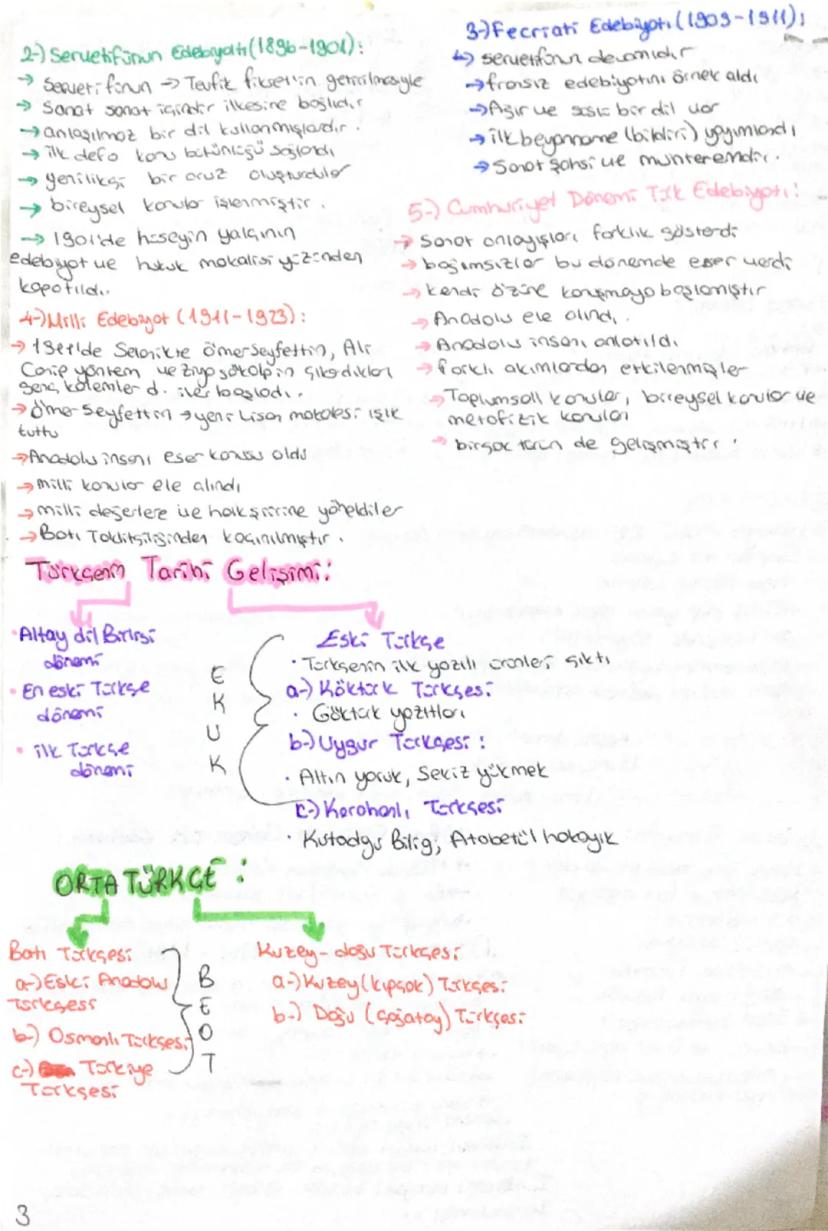 2-) Servetifünun Edebiyatı (1896-1901):
→ Serveti fünun → Tevfik fikret'in getirilmesiyle
→ Sanat sanat içindir ilkesine bağlıdır
→ anlaşılmaz bir dil kullanmışlardır.
→ ilk defa konu bütünlüğü sağlandı
→ yenilikçi bir aruz oluşturdular
→ bireysel konular işlenmiştir.
→ 1901'de hüseyin yalçının
edebiyat ve hukuk makalisi yüzünden
kapatıldı.
3-) Fecriati Edebiyatı (1909-1911):
↳ servetifünun devamıdır
→ fransız edebiyatını örnek aldı
→ Ağır ve süslü bir dil var
→ ilk beyanname (bildiri) yayımlandı
→ Sanat şahsi ve muhteremdir.
4-) Milli Edebiyat (1911-1923):
→ 1911'de Selanikte ömer Seyfettin, Ali
Canip yöntem ve ziya gökalp'in çıkardıkları
genç kalemler d. ile başladı..
→ Ömer Seyfettin → yeni Lisan makalesi ışık
tuttu
→ Anadolu insanı eser konusu oldu
→ milli konular ele alındı
→ milli değerlere ve halk şiirine yöneldiler
→ Batı Taklitçiliğinden kaçınılmıştır.
5-) Cumhuriyet Dönemi Türk Edebiyatı:
→ Sanat anlayışları farklık gösterdi
→ bağımsızlar bu dönemde eser verdi
→ kendi özüne konuşmaya başlamıştır
→ Anadolu ele alındı.
→ Anadolu insanı anlatıldı
→ farklı akımlardan etkilenmişler
→ Toplumsall konular, bireysel konular ve
metafizik konuları
→ birçok türün de gelişmiştir.
Türkçenin Tarihi Gelişimi:
• Altay dil Birliği
dönemi
• En eski Türkçe
dönemi
• ilk Türkçe
dönemi
E
K
U
K
Eski Türkçe
• Türkçenin ilk yazılı ürünleri çıktı
a-) Köktürk Türkçesi
• Göktürk yazıtları
b-) Uygur Türkçesi:
• Altın yaruk, Sekiz yükmek
c-) Karahanlı Türkçesi
• Kutadgu Bilig, Atabetü'l hakayık
ORTA TÜRKÇE:
Batı Türkçesi
a-) Eski Anadolu
Türkçesi
b-) Osmanlı Türkçesi
c-) Türkiye
Türkçesi
B
E
O
T
Kuzey-doğu Türkçesi
a-) Kuzey (kıpçak) Türkçesi
b-) Doğu (çağatay) Türkçesi
3